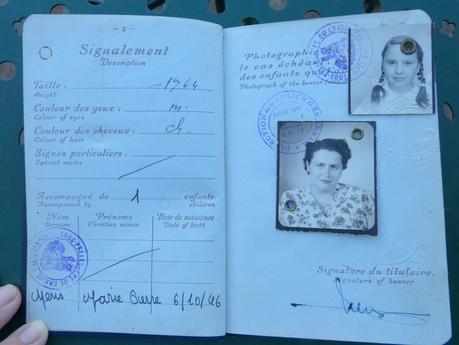 — 2 —
Signalement
Description
Taille : 1m64
Height
Couleur des yeux : m.
Colour of eyes
Couleur des cheveux : ch.
Colour of hair
Signes particuliers :
Special marks
Accompagné de 1 enfants
Accompanied by children
Nom Prénoms Date de naissance
Surname Christian names Date of birth
Marie Pierre 6/10/46
Photographie
le cas échéant
des enfants qui
Photograph of the bearer
Signature du titulaire
Signature of bearer